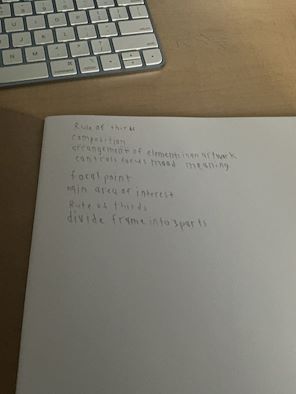 Rule of thirds
composition
arrangement of elements in an artwork
controls focus mood meaning
focal point
main area of interest
Rule of thirds
divide frame into 3 parts